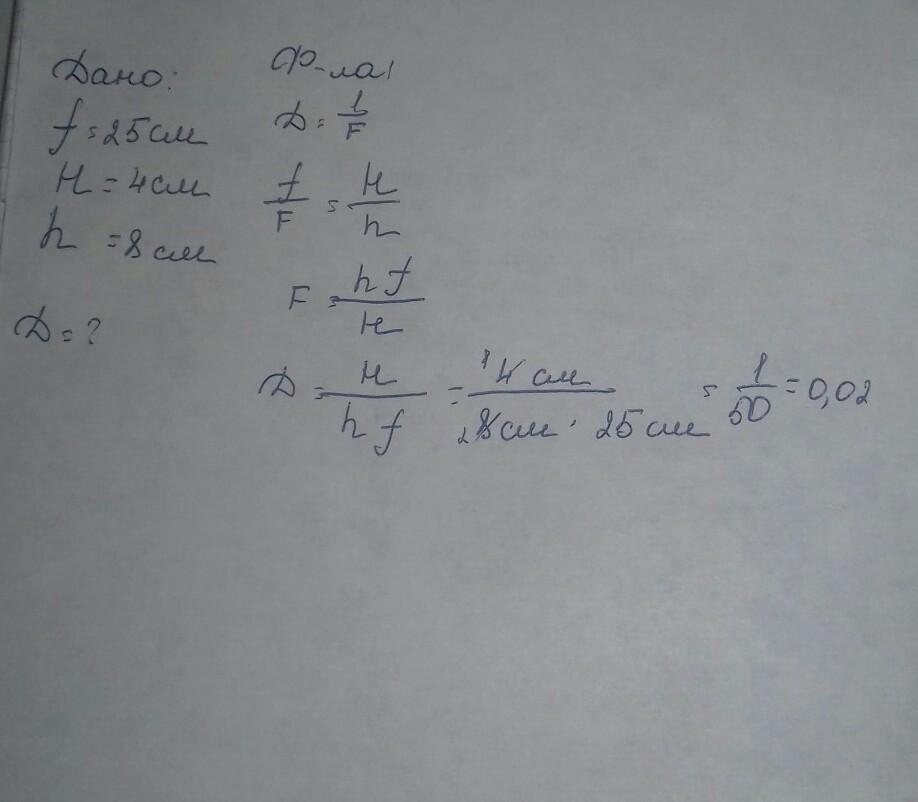 Дано:
f = 25 см
H = 4 см
h = 8 см
D = ?
Ф-ла:
D = 1/F
f/F = H/h
F = hf/H
D = H/hf = ¹4 см/₂8 см · 25 см = 1/50 = 0,02